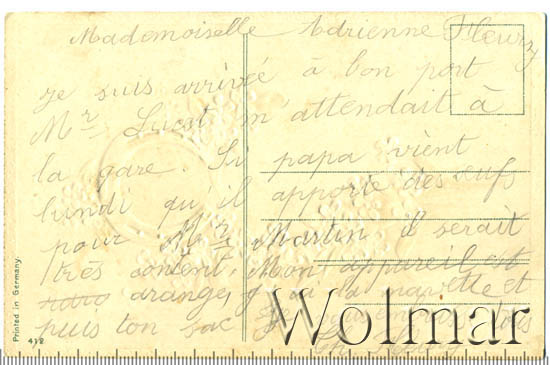 Mademoiselle Adrienne Fleury
je suis arrivée à bon port
Mr Lucot m'attendait à
la gare. Si papa vient
lundi qu'il apporte des œufs
pour Mr Martin il serait
très content. Mon appareil est
arangé, j'ai la navette et
puis ton sac. Je
Printed in Germany.
418
Wolmar